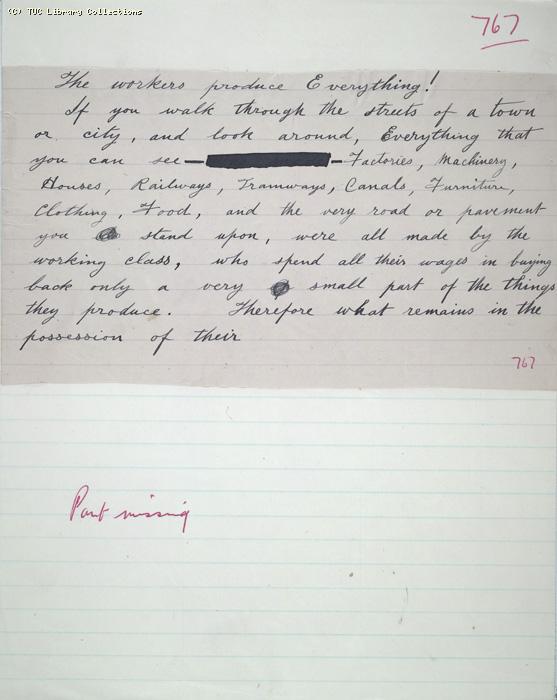 (C) TUC Library Collections
767
The workers produce Everything!
If you walk through the streets of a town
or city, and look around, Everything that
you can see — — Factories, Machinery,
Houses, Railways, Tramways, Canals, Furniture,
Clothing, Food, and the very road or pavement
you stand upon, were all made by the
working class, who spend all their wages in buying
back only a very small part of the things
they produce. Therefore what remains in the
possession of their
767
Part missing